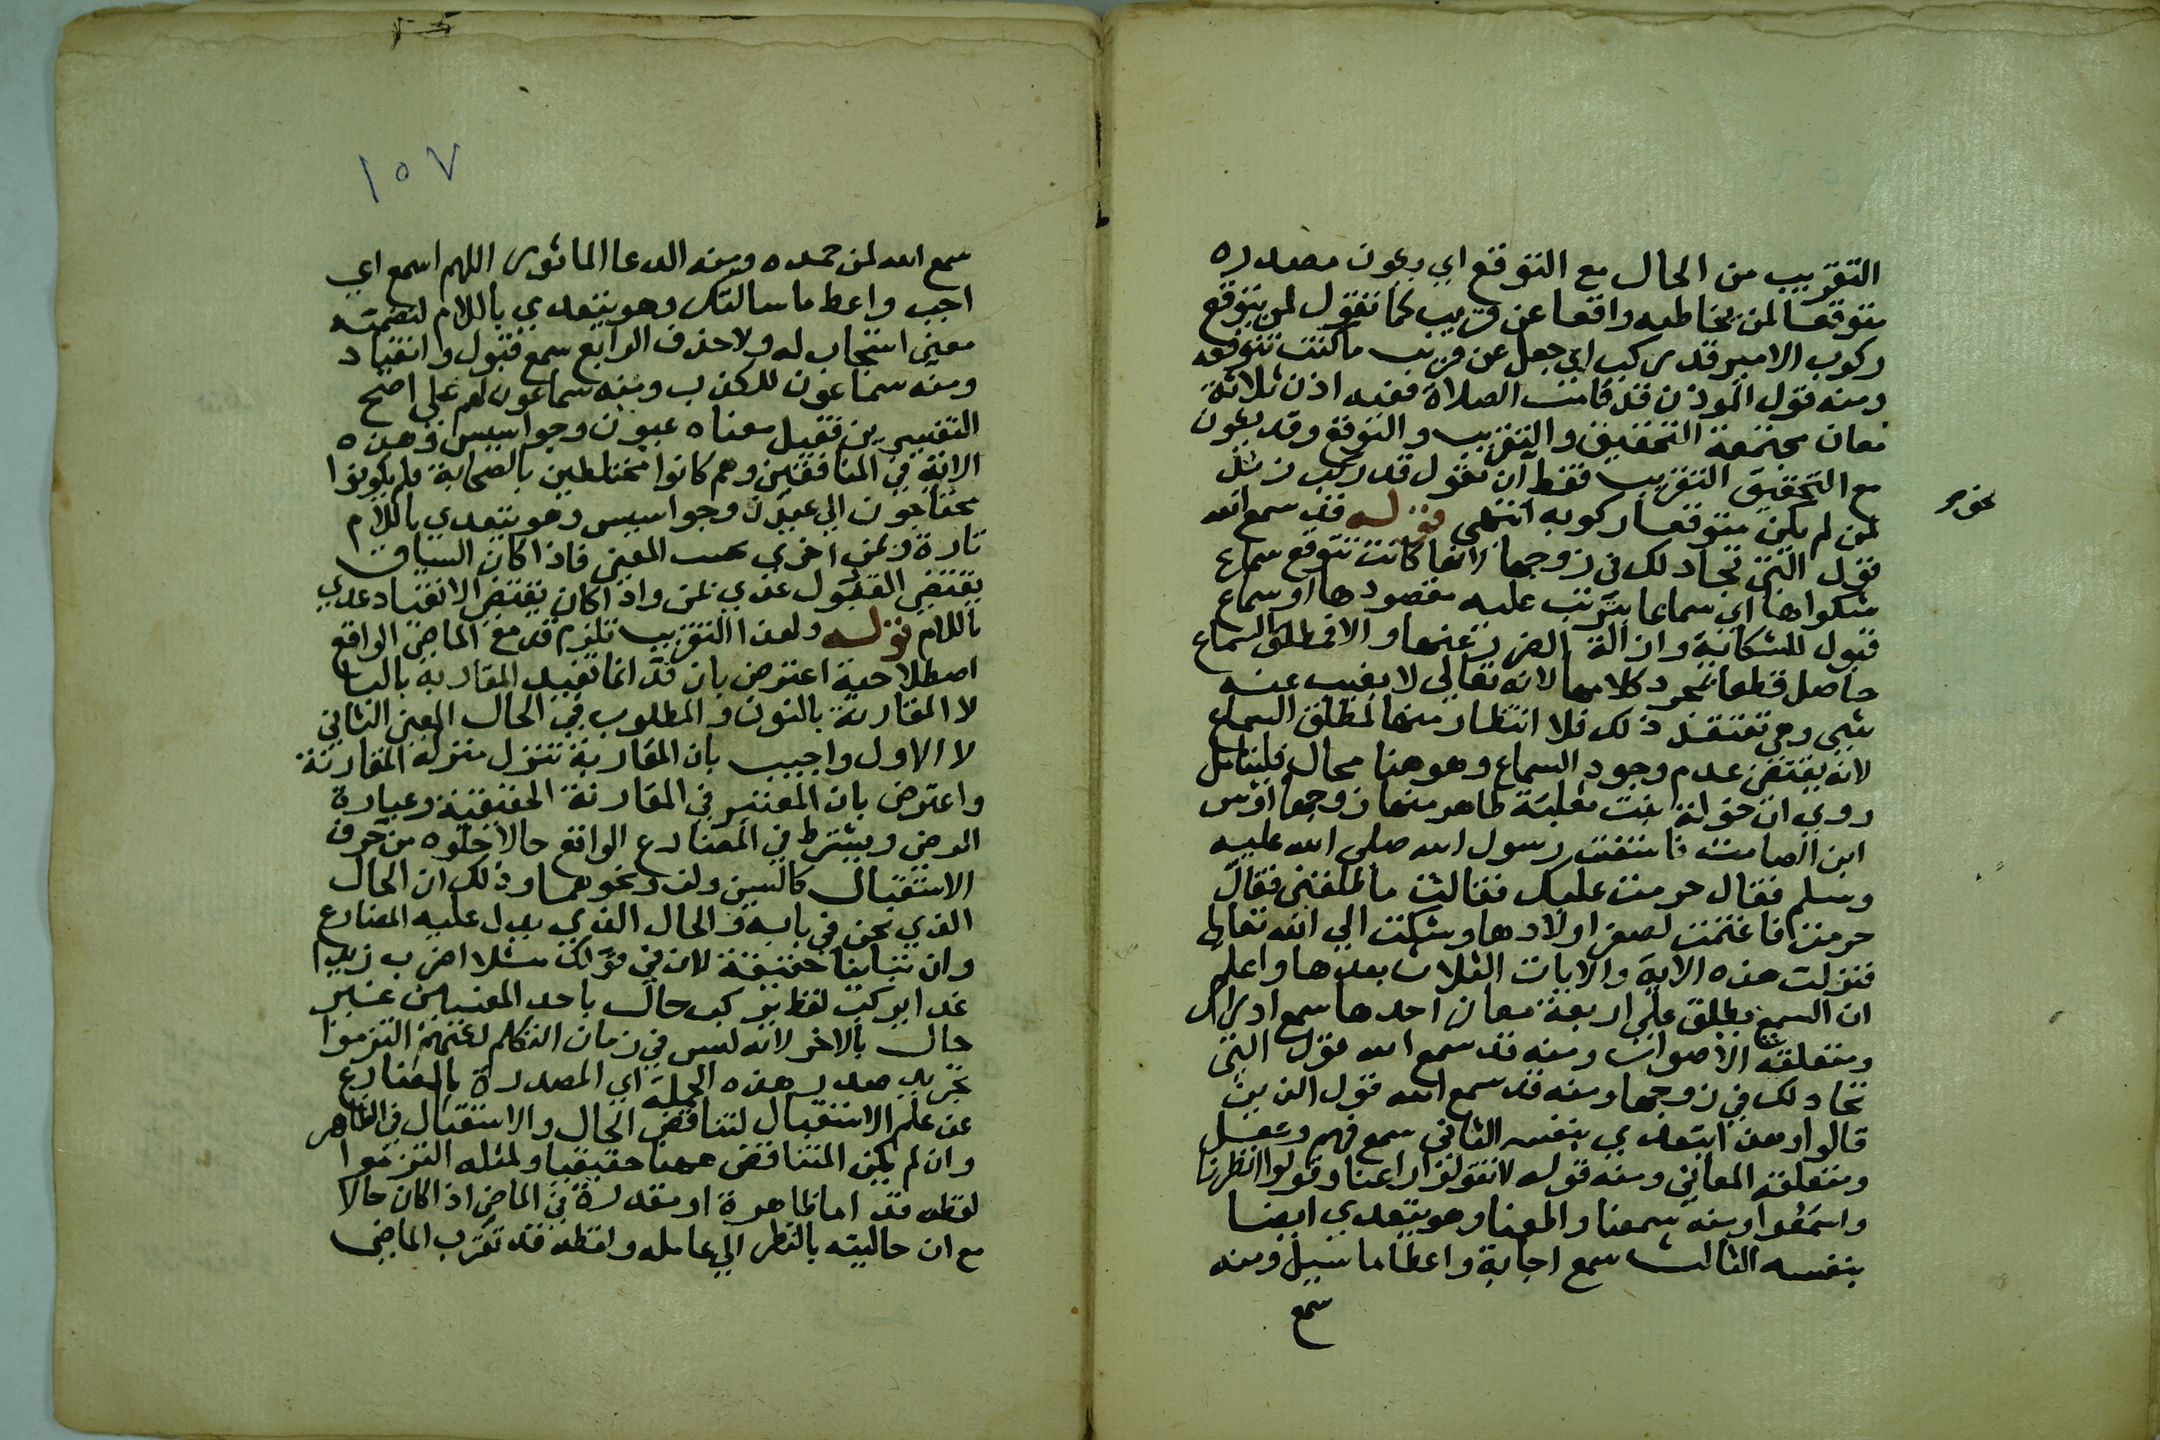 التقريب من الحال مع التوقع اي يكون مصدره
متوقعا لمن يخاطبه واقعا عن قريب كما تقول لمن يتوقع
ركوب الامير قد ركب اي جعل عن قريب ما كنت تتوقعه
ومنه قول الموذن قد قامت الصلاة ففيه اذن ثلاثة
معان مجتمعة التحقيق والتقريب والتوقع وقد يكون
مع التحقيق التقريب فقط ان تقول قد ركب زيد
لمن لم يكن متوقعا ركوبه انتهى قوله قد سمع الله
نحو
قول التي تجادلك في زوجها لانها كانت تتوقع سماع
شكواها اي سماعا يترتب عليه مقصودها او سماع
قبول للشكاية وازالة الضرر عنها والا فمطلق السماع
حاصل قطعا بمجرد كلامها لانه تعالى لا يغيب عنه
شي وهي تعتقد ذلك فلا انتظار منها لمطلق السماع
لانه يقتضي عدم وجود السماع وهو هنا محال فليتامل
روي ان خولة بنت ثعلبة ظاهر منها زوجها اوس
ابن الصامت فاستفتت رسول الله صلى الله عليه
وسلم فقال حرمت عليك فقالت ما طلقني فقال
حرمت فاغتمت لصغر اولادها وشكت الي الله تعالى
فنزلت هذه الاية والايات الثلاث بعدها واعلم
ان السمع يطلق على اربعة معان احدها سمع ادراك
ومتعلقه الاصوات ومنه قد سمع الله قول التي
تجادلك في زوجها ومنه قد سمع الله قول الذين
قالوا وهذا يتعدي بنفسه الثاني سمع فهم وعقل
ومتعلقه المعاني ومنه قوله لا تقولوا راعنا وقولوا انظرنا
واسمعوا ومنه سمعنا واطعنا وهو يتعدي ايضا
بنفسه الثالث سمع اجابة واعطا ما سيل ومنه
سمع
١٥٧
سمع الله لمن حمده ومنه الدعا الماثور اللهم اسمع اي
اجب واعط ما سالتك وهو يتعدي باللام لتضمنه
معني استجاب له ولا حذف الرابع سمع قبول وانقياد
ومنه سماعون للكذب ومنه سماعون لهم على اصح
التفسيرين فقيل معناه عيون وجواسيس وهذه
الاية في المنافقين وهم كانوا مختلطين بالصحابة فلم يكونوا
محتاجون الي عيون وجواسيس وهو يتعدي باللام
تارة وبمن اخري بحسب المعني فاذا كان السياق
يقتضي القبول عدي بمن واذا كان يقتضي الانقياد عدي
باللام قوله ولهذا التقريب تلزم قد مع الماضي الواقع
اصطلاحية اعترض بان قد انما تفيد المقاربة بالبا
لا المقارنة بالنون والمطلوب في الحال المعني الثاني
لا الاول واجيب بان المقاربة تنزل منزلة المقارنة
واعترض بان المعتبر في المقارنة الحقيقية وعبارة
الرضي ويشترط في المضارع الواقع حالا خلوه من حرف
الاستقبال كالسين ولن ونحوهما وذلك ان الحال
الذي نحن في بابه والحال الذي يدل عليه المضارع
وان تباينا حقيقة لان في قولك مثلا اضرب زيدا
غدا يركب لفظ يركب حال باحد المعنيين غير
حال بالاخر لانه ليس في زمان التكلم لكنهم التزموا
تجريد صدر هذه الجملة اي المصدرة بالمضارع
عن علم الاستقبال لتناقض الحال والاستقبال في الظاهر
وان لم يكن التناقض ههنا حقيقيا ولمثله التزموا
لفظه قد اما ظاهرة او مقدرة في الماضي اذا كان حالا
مع ان حاليته بالنظر الي عامله ولفظه قد تقرب الماضي